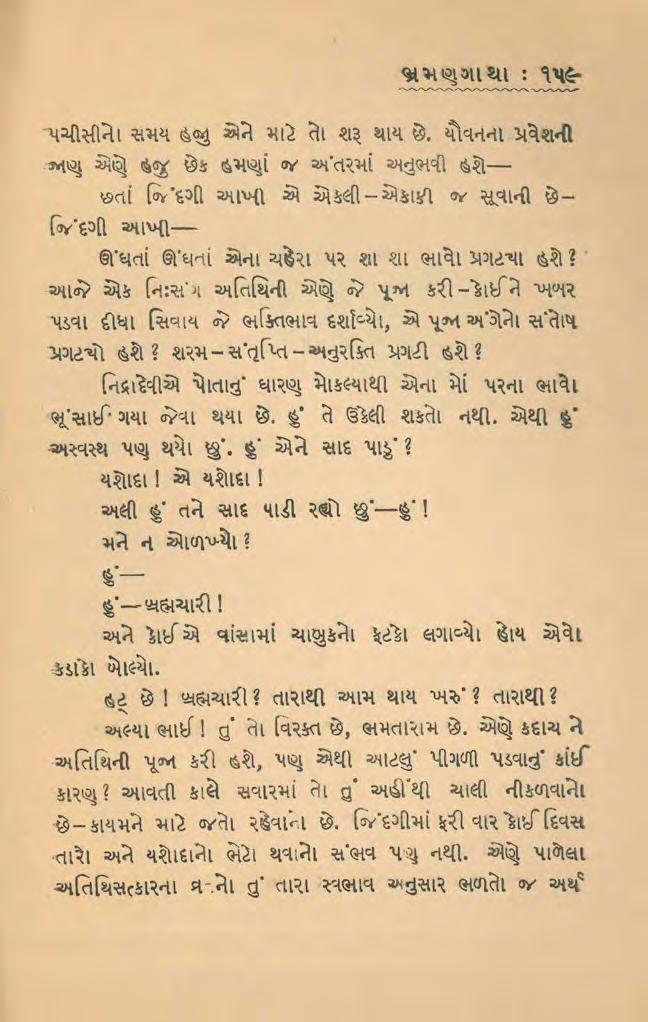 ભ્રમણગાથા : ૧૫૯
પચીસીનો સમય હજુ એને માટે તો શરૂ થાય છે. યૌવનના પ્રવેશની
જાણ એણે હજુ છેક હમણાં જ અંતરમાં અનુભવી હશે—
છતાં જિંદગી આખી એ એકલી–એકાકી જ સૂવાની છે–
જિંદગી આખી—
ઊંઘતાં ઊંઘતાં એના ચહેરા પર શા શા ભાવો પ્રગટ્યા હશે?
આજે એક નિઃસંગ અતિથિની એણે જે પૂજા કરી–કોઈને ખબર
પડવા દીધા સિવાય જે ભક્તિભાવ દર્શાવ્યો, એ પૂજા અંગેનો સંતોષ
પ્રગટ્યો હશે? શરમ–સંતૃપ્તિ–અનુરક્તિ પ્રગટી હશે?
નિદ્રાદેવીએ પોતાનું ઘારણ મોકલ્યાથી એના મોં પરના ભાવો
ભૂંસાઈ ગયા જેવા થયા છે. હું તે ઉકેલી શકતો નથી. એથી હું
અસ્વસ્થ પણ થયો છું. હું એને સાદ પાડું?
યશોદા! એ યશોદા!
અલી હું તને સાદ પાડી રહ્યો છું—હું!
મને ન ઓળખ્યો?
હું—
હું—બ્રહ્મચારી!
અને કોઈએ વાંસામાં ચાબુકનો ફટકો લગાવ્યો હોય એવો
કડાકો બોલ્યો.
હટ્ છે! બ્રહ્મચારી? તારાથી આમ થાય ખરું? તારાથી?
અલ્યા ભાઈ! તું તો વિરક્ત છે, ભમતારામ છે. એણે કદાચ ને
અતિથિની પૂજા કરી હશે, પણ એથી આટલું પીગળી પડવાનું કાંઈ
કારણ? આવતી કાલે સવારમાં તો તું અહીંથી ચાલી નીકળવાનો
છે–કાયમને માટે જતો રહેવાનો છે. જિંદગીમાં ફરી વાર કોઈ દિવસ
તારો અને યશોદાનો ભેટો થવાનો સંભવ પણ નથી. એણે પાળેલા
અતિથિસત્કારના તું તારા સ્વભાવ અનુસાર ભળતો જ અર્થ